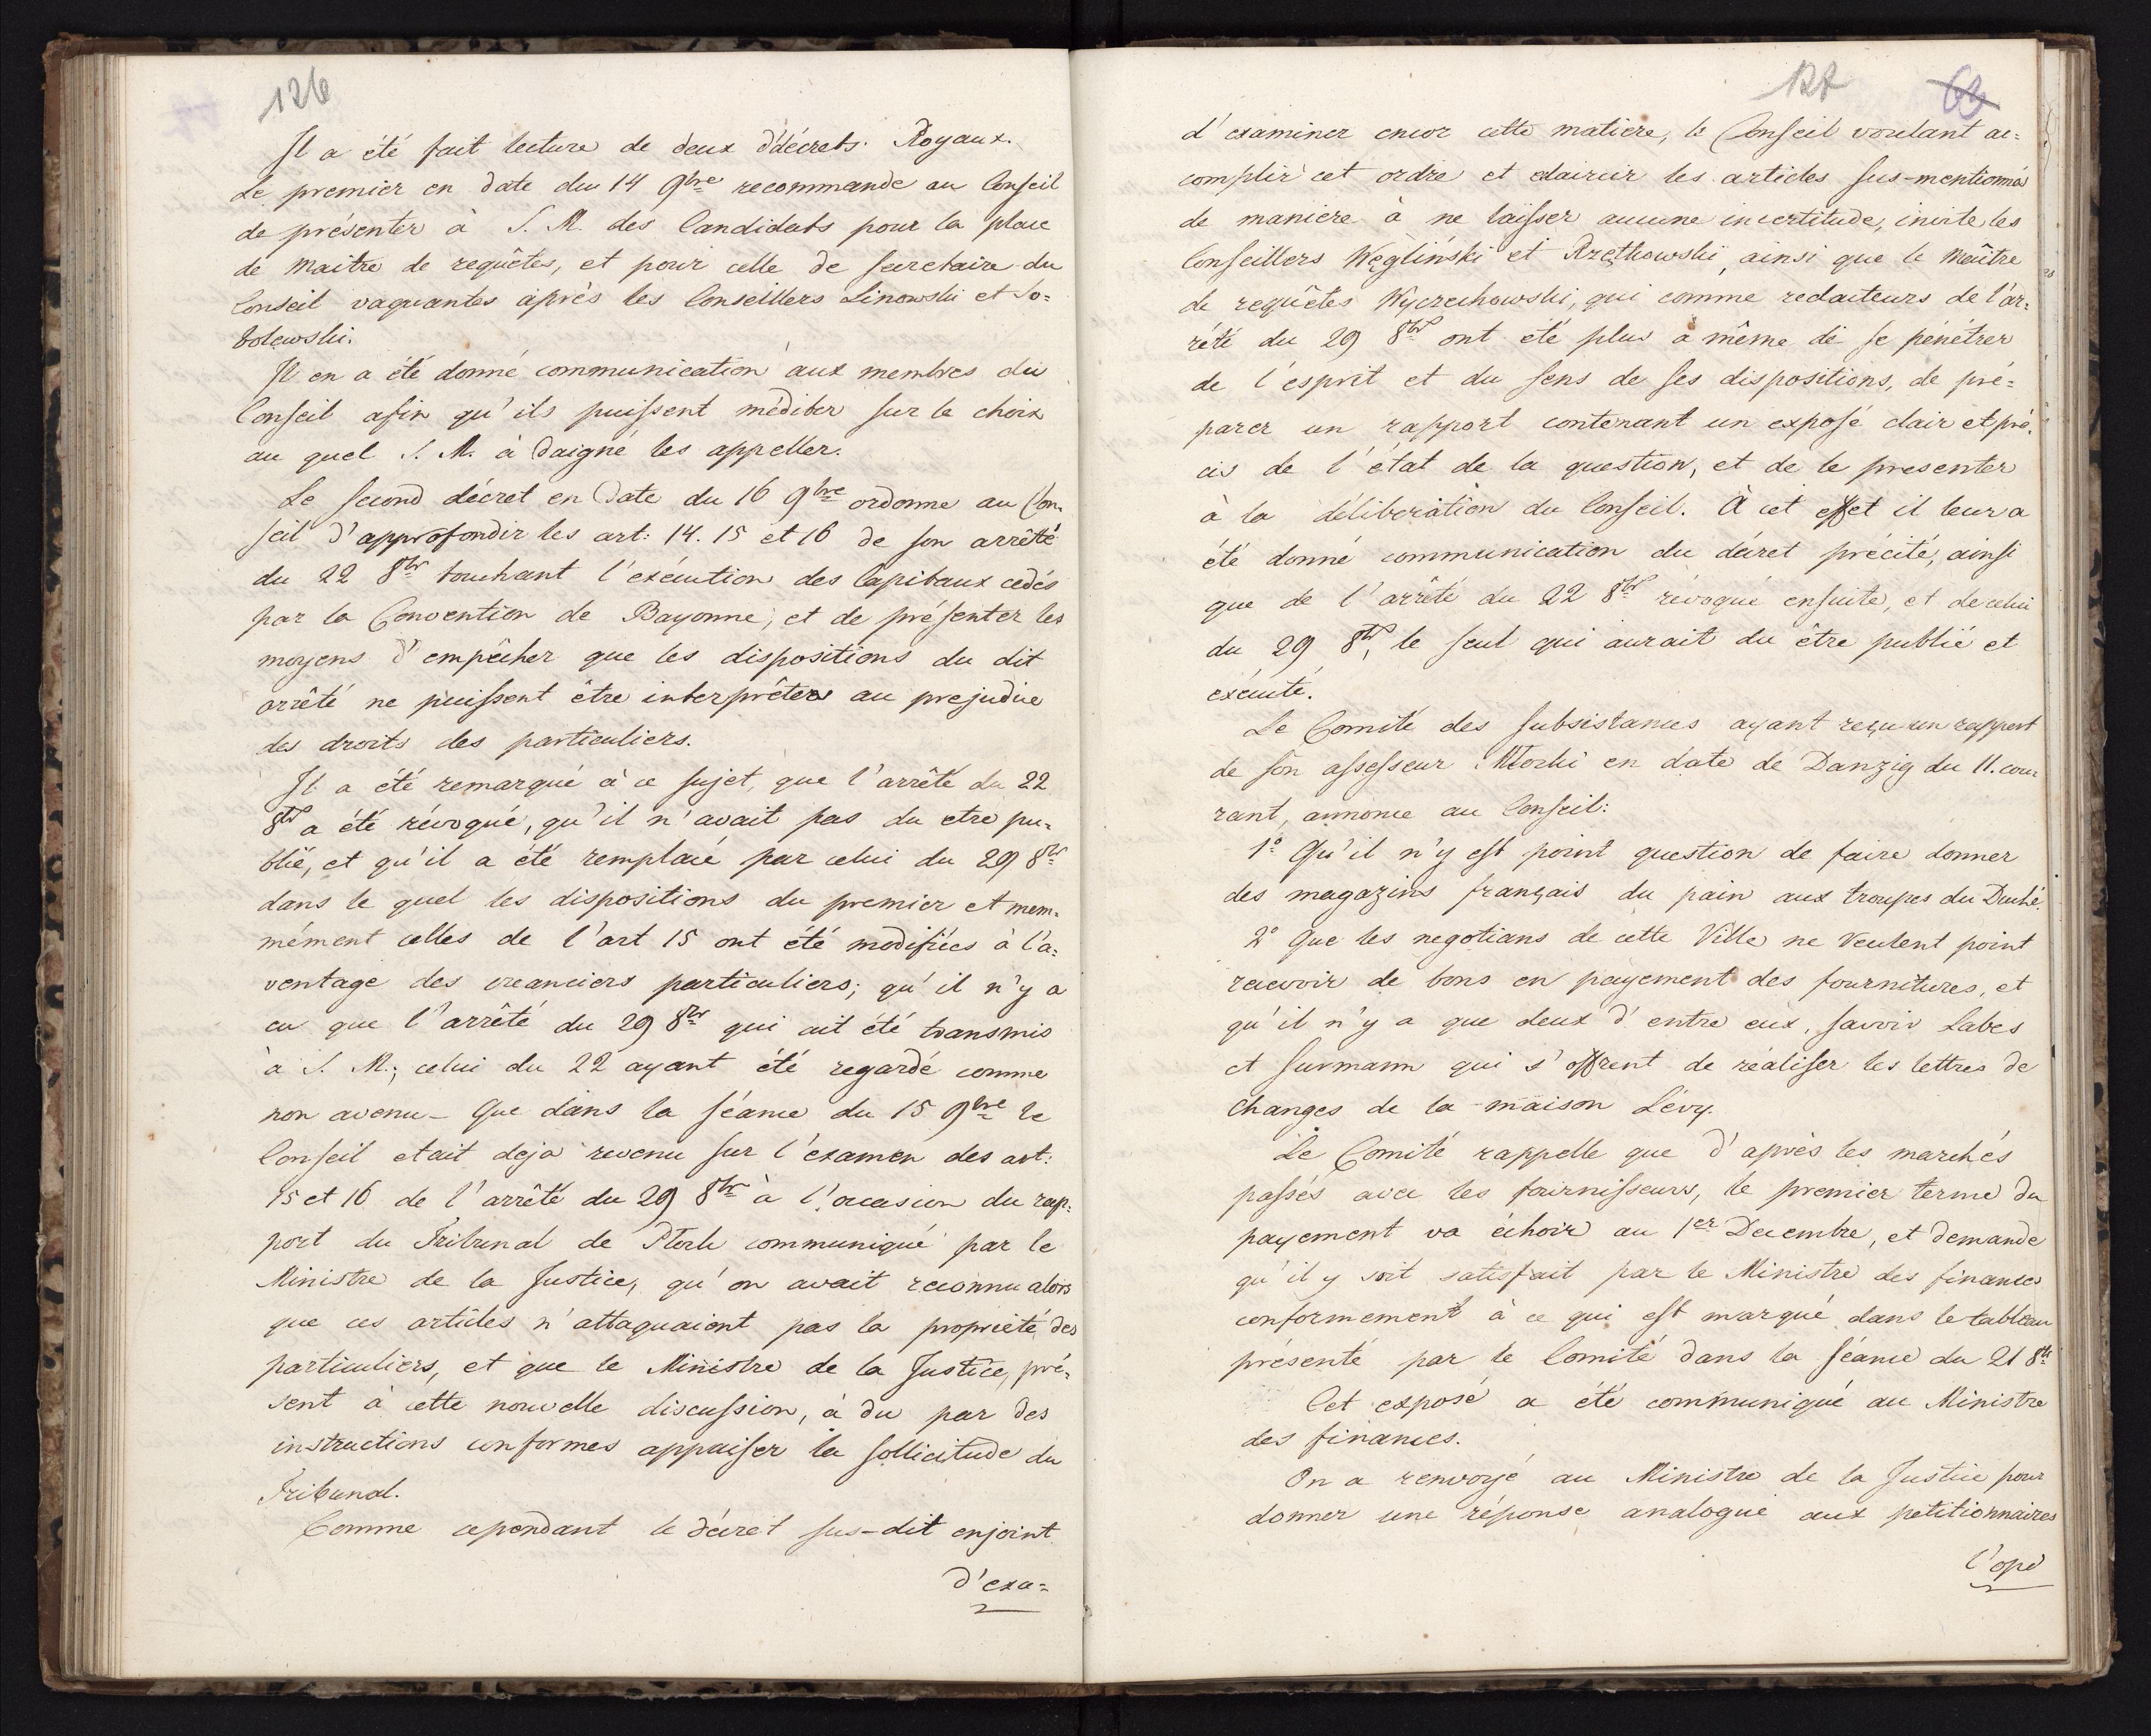 126
Il a été fait lecture de deux d'décrets Royaux.
Le premier en date du 14 9bre recommande au Conseil
de présenter à S. M. des Candidats pour la place
de maitre de requêtes, et pour celle de secretaire du
Conseil vaquantes après les Conseillers Linowski et So=
bolewski.
Il en a été donné communication aux membres du
Conseil afin qu'ils puissent méditer sur le choix
au quel S. M. à daigné les appeller.
Le second décret en date du 16 9bre ordonne au Con=
seil d'approfondir les art: 14. 15 et 16 de son arrêté
du 22 8br touchant l'exécution des Capitaux cedés
par la Convention de Bayonne, et de présenter les
moyens d'empêcher que les dispositions du dit
arrêté ne puissent être interprêtes au prejudice
des droits des particuliers.
Il a été remarqué à ce sujet, que l'arrêté du 22
8br a été révoqué, qu'il n'avait pas du etre pu=
blié, et qu'il a été remplacé par celui du 29 8br
dans le quel les dispositions du premier et mem=
mément celles de l'art 15 ont été modifiées à l'a=
ventage des creanciers particuliers; qu'il n'y a
eu que l'arrêté du 29 8br qui ait été transmis
à S. M.; celui du 22 ayant été regardé comme
non avenu - Que dans la séance du 15 9bre le
Conseil etait deja revenu sur l'examen des art:
15 et 16 de l'arrêté du 29 8br à l'occasion du rap=
port du Tribunal de Płock communiqué par le
Ministre de la Justice, qu'on avait reconnu alors
que ces articles n'attaquaient pas la proprieté des
particuliers, et que le Ministre de la Justice, pré=
sent à cette nouvelle discussion, à du par des
instructions conformes appaiser la sollicitude du
Tribunal.
Comme cependant le décret sus-dit enjoint
d'exa=
127 63
d'examiner encor cette matiere, le Conseil voulant ac=
complir cet ordre et eclaircir les articles sus-mentionnés
de maniere à ne laisser aucune incertitude, invite les
Conseillers Węgliński et Rzętkowski, ainsi que le Maître
de requêtes Wyczechowski, qui comme redacteurs de l'ar=
rêté du 29 8br ont été plus à même de se pénétrer
de l'esprit et du sens de ses dispositions, de pré=
parer un rapport contenant un exposé clair et pré=
cis de l'état de la question, et de le presenter
à la déliberation du Conseil. À cet effet il leur a
été donné communication du décret précité, ainsi
que de l'arrêté du 22 8br révoqué ensuite, et de celui
du 29 8br, le seul qui aurait du être publié et
exécuté.
Le Comité des subsistances ayant reçu un rapport
de son assesseur Młocki en date de Danzig du 11. cou=
rant, annonce au Conseil:
1º Qu'il n'y est point question de faire donner
des magazins français du pain aux troupes du Duché.
2º Que les negotians de cette Ville ne veulent point
recevoir de bons en payement des fournitures, et
qu'il n'y a que deux d'entre eux, savoir Labes
et Surmann qui s'offrent de réaliser les lettres de
Changes de la maison Lévy.
Le Comité rappelle que d'après les marchés
passés avec les fournisseurs, le premier terme du
payement va échoir au 1er Decembre, et demande
qu'il y soit satisfait par le Ministre des finances
conformement à ce qui est marqué dans le tableau
présenté par le Comité dans la séance du 21 8br
Cet exposé a été communiqué au Ministre
des finances.
On a renvoyé au Ministre de la Justice pour
donner une réponse analogue aux petitionnaires
l'opé